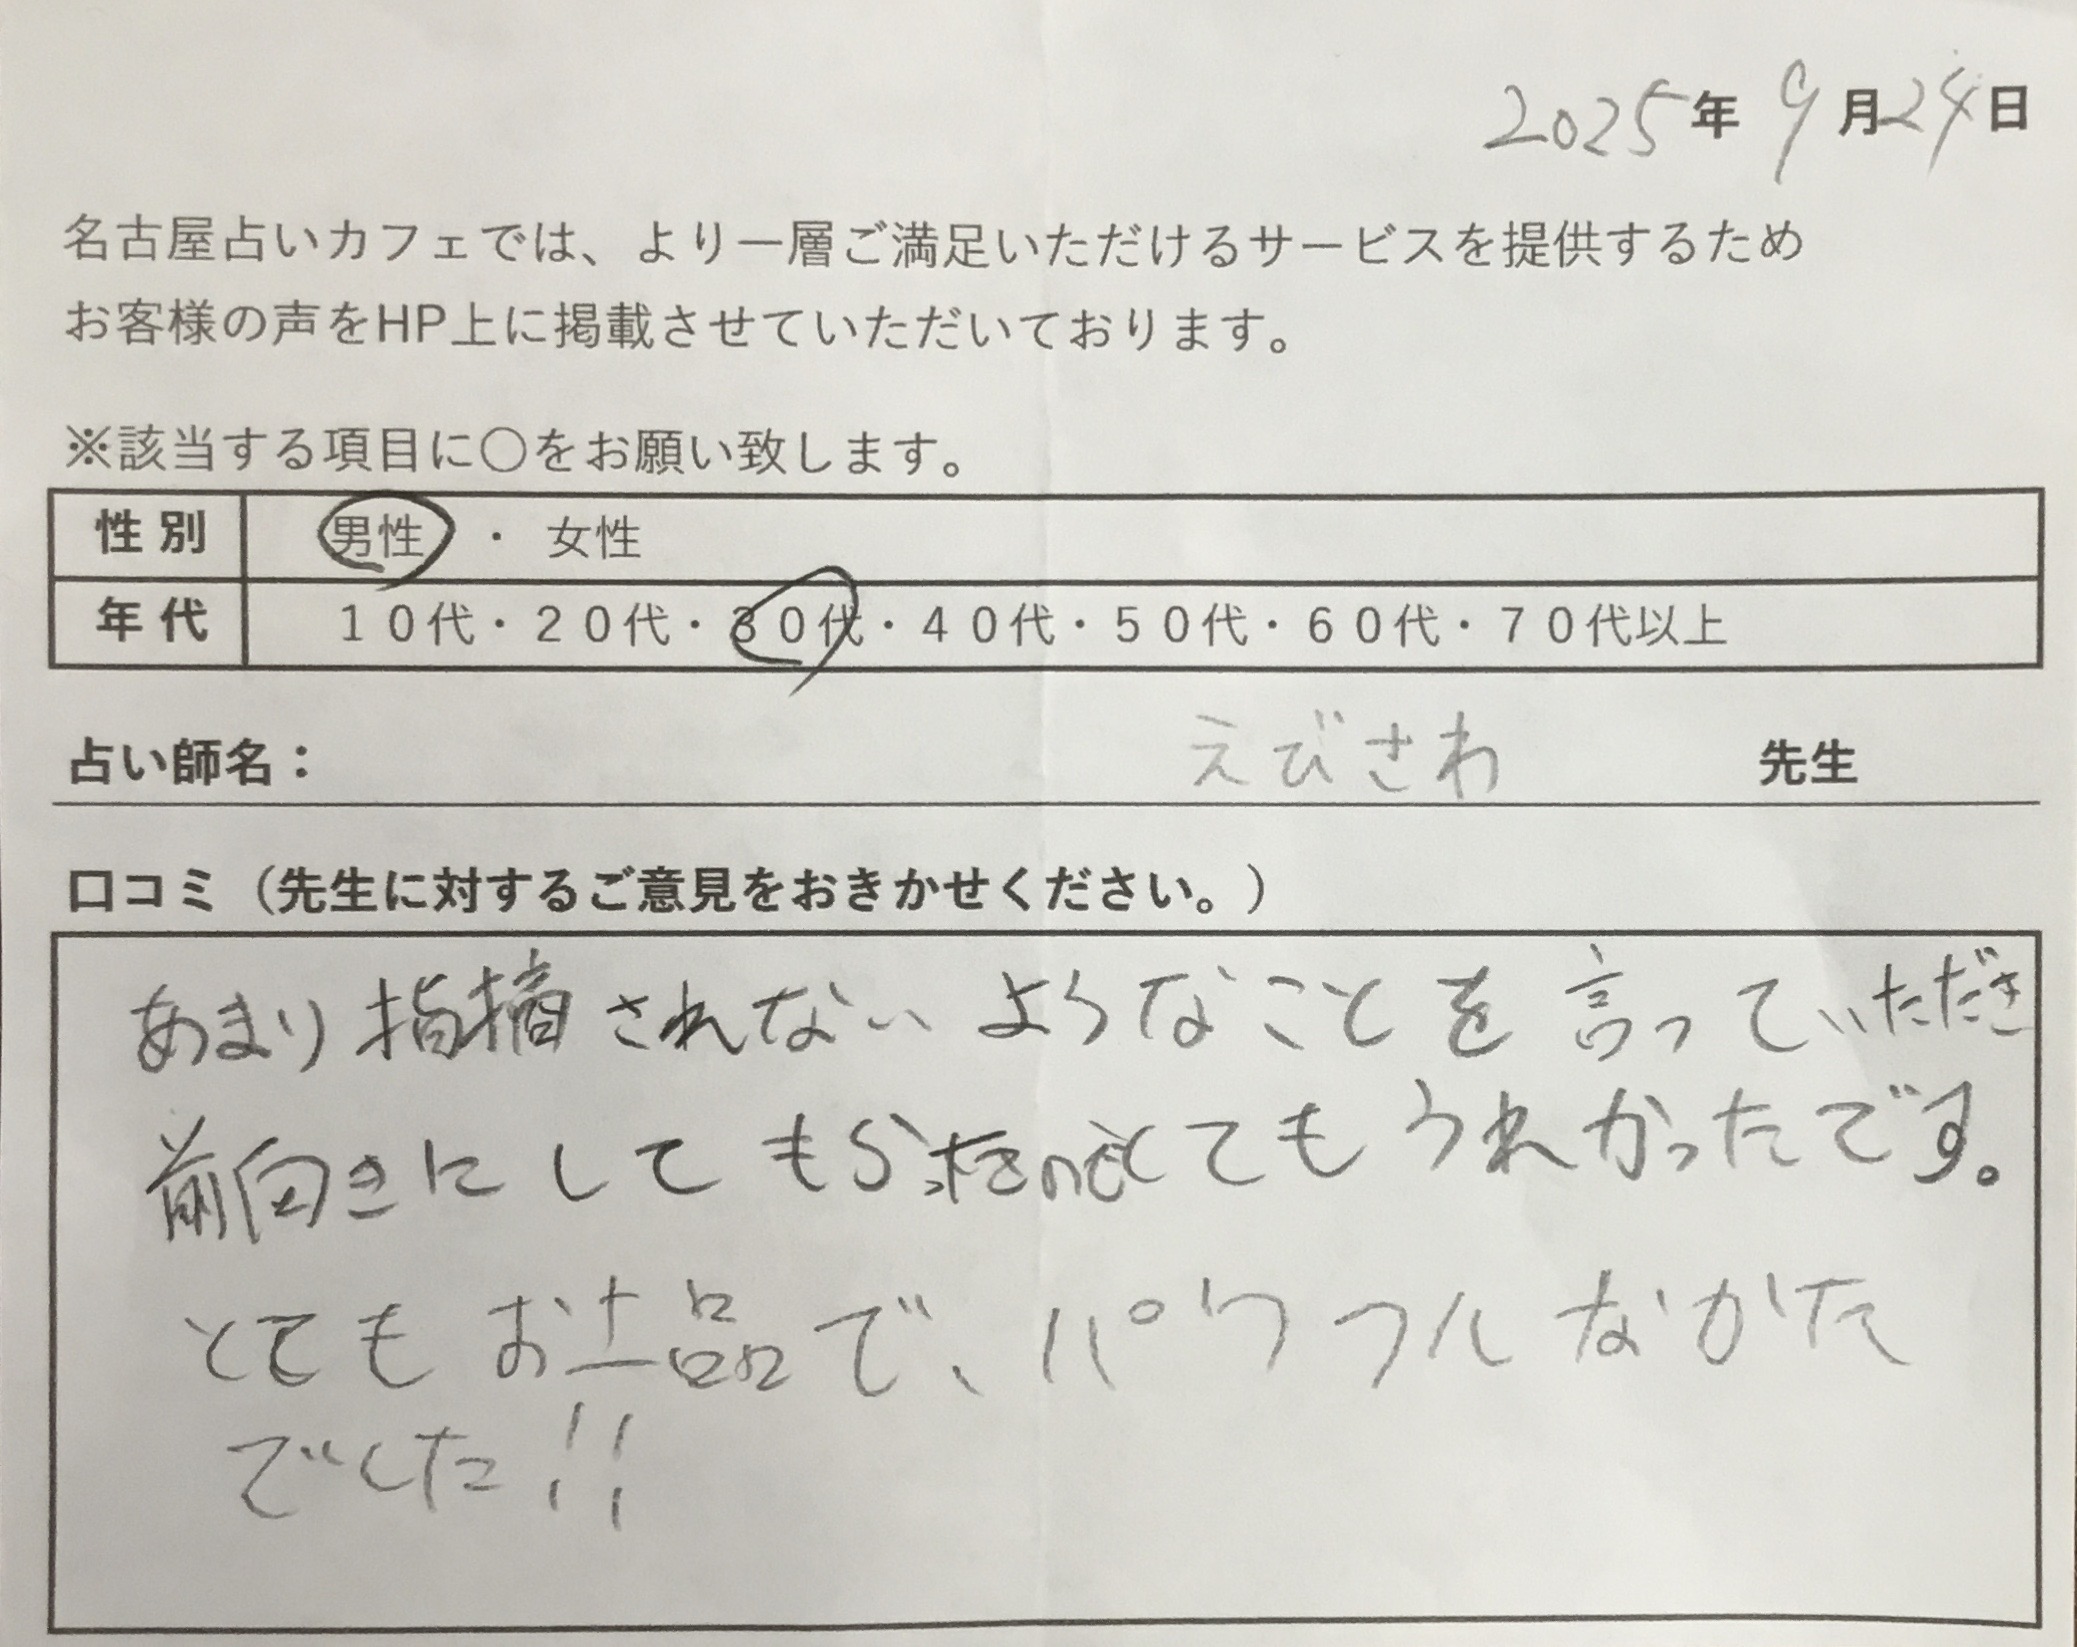 2025年 9月24日
名古屋占いカフェでは、より一層ご満足いただけるサービスを提供するため
お客様の声をHP上に掲載させていただいております。
※該当する項目に○をお願い致します。
性別 男性 ・ 女性
年代 10代・20代・30代・40代・50代・60代・70代以上
占い師名： えびさわ 先生
口コミ（先生に対するご意見をおきかせください。）
あまり指摘されないようなことを言っていただき
前向きにしてもらっ とてもうれかったです。
とてもお上品で、パワフルなかた
でした!!